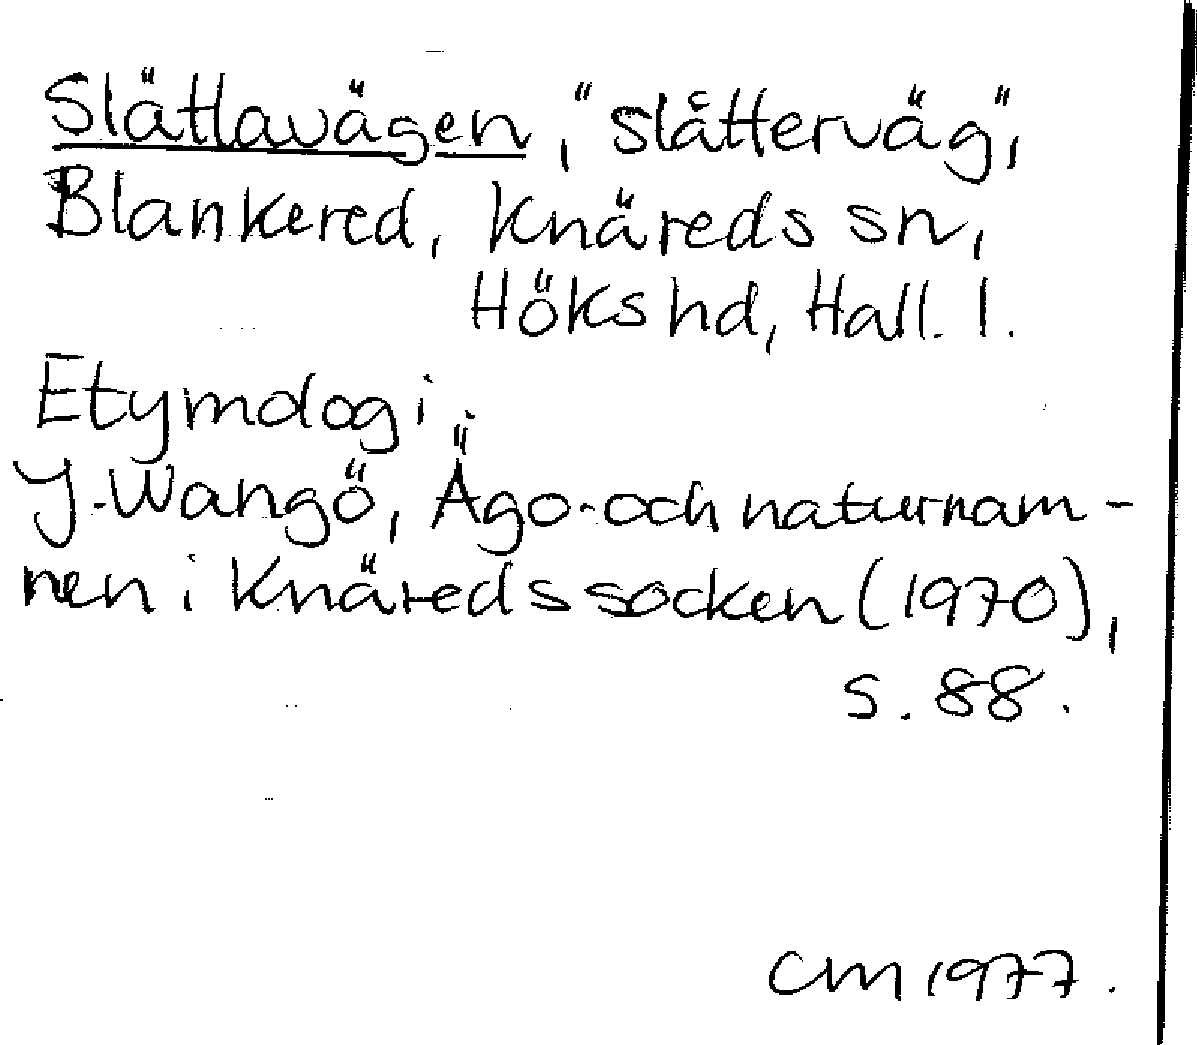 Slättlavägen, "slåtterväg",
Blankered, Knäreds sn,
Höks hd, Hall. l.
Etymologi.
J. Wangö, Ägo- och naturnam-
nen i Knäreds socken (1970),
s. 88.
CM 1977.